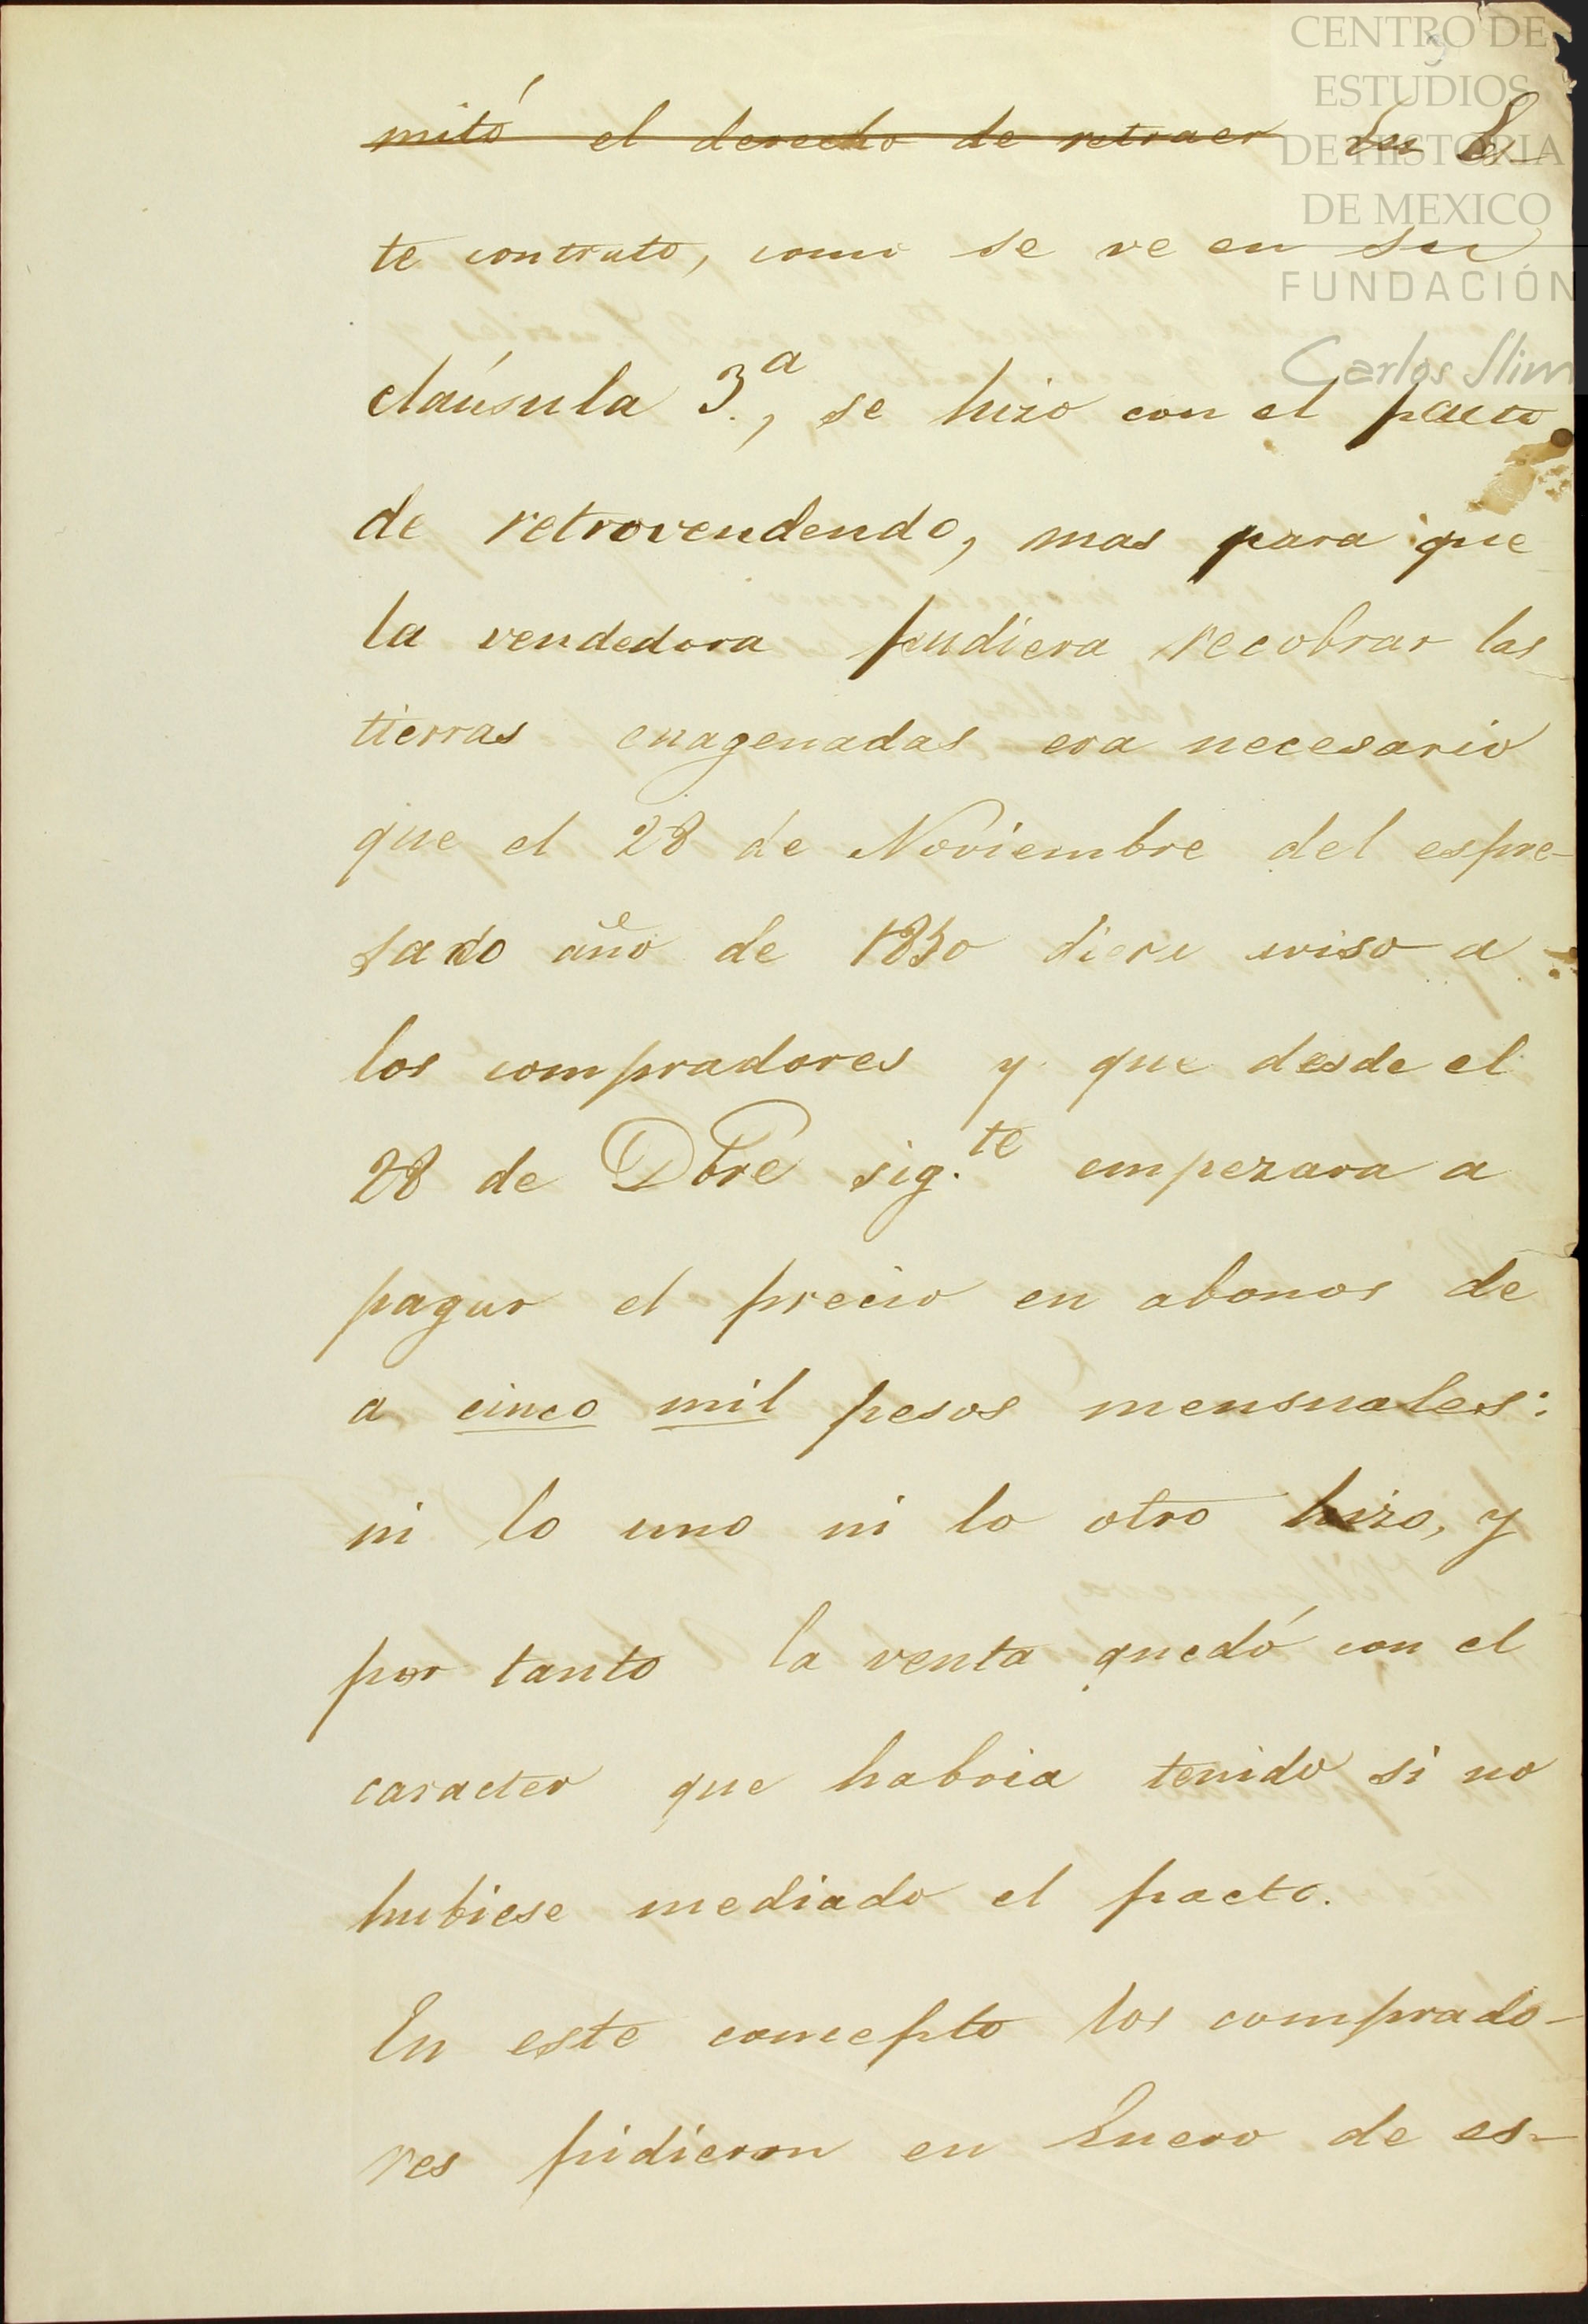 CENTRO DE
ESTUDIOS
DE HISTORIA
DE MEXICO
FUNDACIÓN
Carlos Slim
mitó el derecho de retraer
te contrato, como se ve en su
claúsula 3ª., se hizo con el pacto
de retrovendendo, mas para que
la vendedora pudiera recobrar las
tierras enagenadas era necesario
que el 28 de Noviembre del espre-
sado año de 1830 diera aviso a
los compradores y que desde el
28 de Dbre sig.te empezara a
pagar el precio en abonos de
a cinco mil pesos mensuales:
ni lo uno ni lo otro hizo, y
por tanto la venta quedó con el
caracter que habria tenido si no
hubiese mediado el pacto.
En este concepto los comprado-
res pidieron en Enero de es-